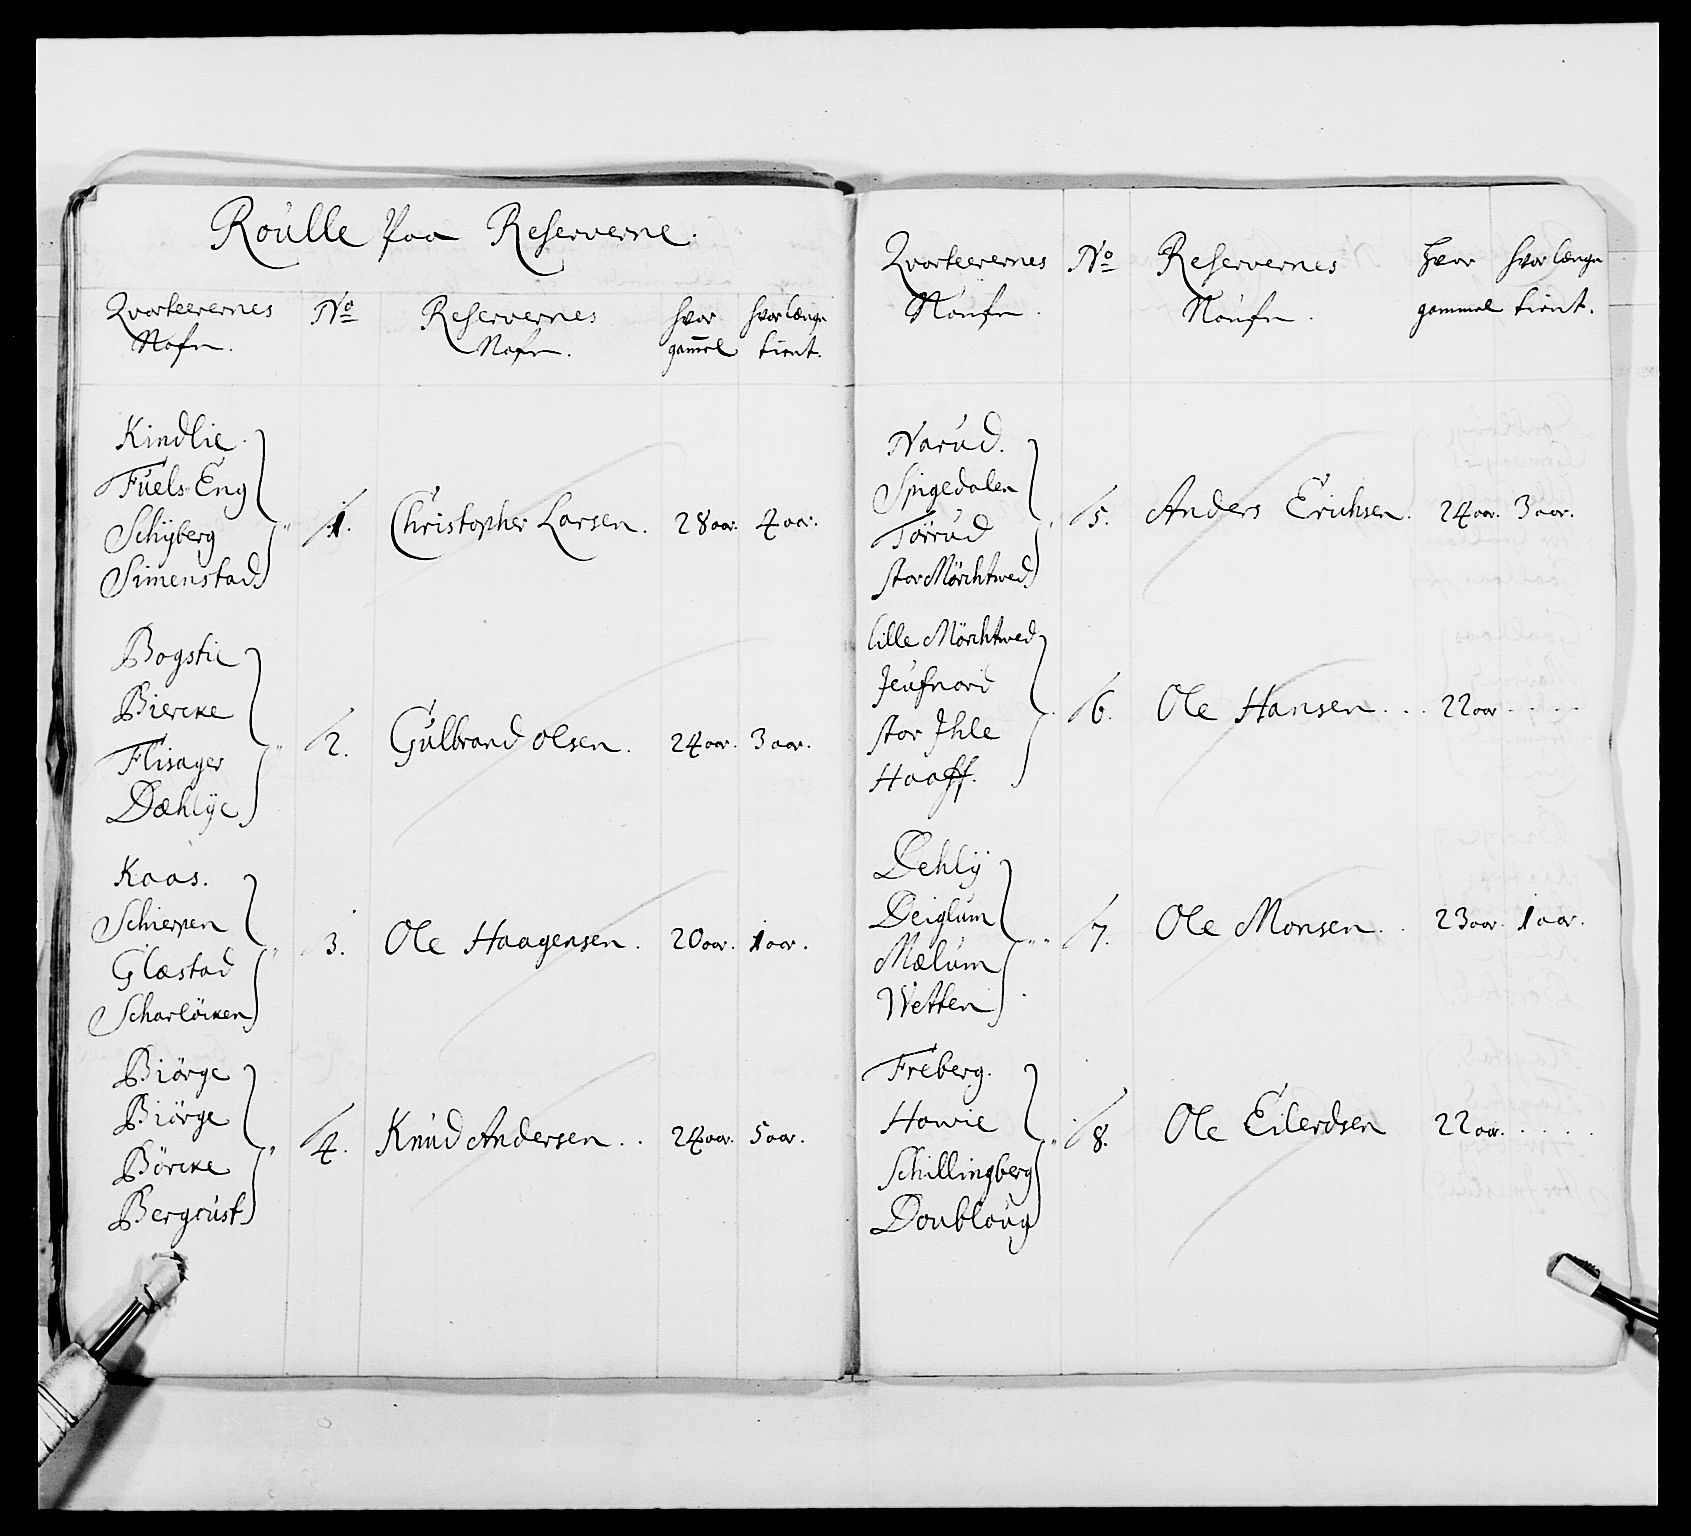 Roulle paa Reserverne.
Qvarteerernes No Reservernes hvor hvorlænge
Nafn. Nafn. gammel tient.
Kindlie.
Fuels Eng
Schÿberg 1. Christopher Larsen. 28 aar. 4 aar.
Simenstad
Bogstie
Biercke
Flisager 2. Gulbrand Olsen. 24 aar. 3 aar.
Dæhlÿe
Kaas.
Schierpen
Glæstad 3. Ole Haagensen. 20 aar. 1 aar.
Scharlöcken
Biörge
Biörge
Börcke 4. Knud Andersen.. 24 aar. 5 aar.
Bergrust
Qvarteerernes No Reservernes hvor hvorlænge
Naufn. Naufn. gammel tient.
Narud.
Spigedalen
Törrud 5. Anders Erichsen. 24 aar. 3 aar.
stor Mörchtwed
lille Mörchtwed
Jeufnord
stor Ihle 6. Ole Hansen... 22 aar.....
Haaff.
Dehlÿ
Deiglum
Mælum 7. Ole Monsen.. 23 aar. 1 aar.
Wetten
Freberg.
Howie
Schillingberg 8. Ole Eilerdsen 22 aar.....
Doubloug